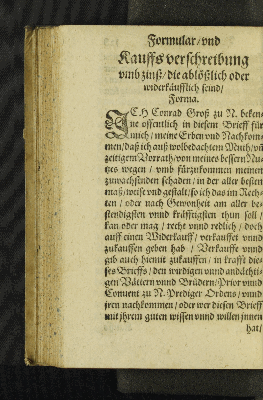 Formular/vnd
Kauffs verschreibung
vmb zinß/die ablößlich oder
widerkäufflich seind/
Forma.
ICH Conrad Groß zu N. beken-
ne offentlich in diesem Brieff für
mich/meine Erben vnd Nachkom-
men/daß ich auß wolbedachtem Muth/vñ
zeitigem Vorrath/von meines bessern Nu-
tzes wegen/vmb fürzukommen meinen
zuwachsinden schaden/in der aller besten
maß/weise vnd gestalt/so ich das im Rech-
ten/oder nach Gewonheit am aller be-
stendigsten vnnd kräfftigsten thun soll/
kan oder mag/recht vnnd redlich/doch
auff einen Widerkauff/verkauffet vnnd
zukauffen geben hab/Verkauffe vnnd
gib auch hiemit zukauffen/in krafft die-
ses Brieffs/den wirdigen vnnd andächti-
gen Vättern vnnd Brüdern/Prior vnnd
Conuent zu N. Prediger Ordens/vnnd
jren nachkommen/oder wer diesen Brieff
mit jhrem guten wissen vnnd willen jnnen
hat/